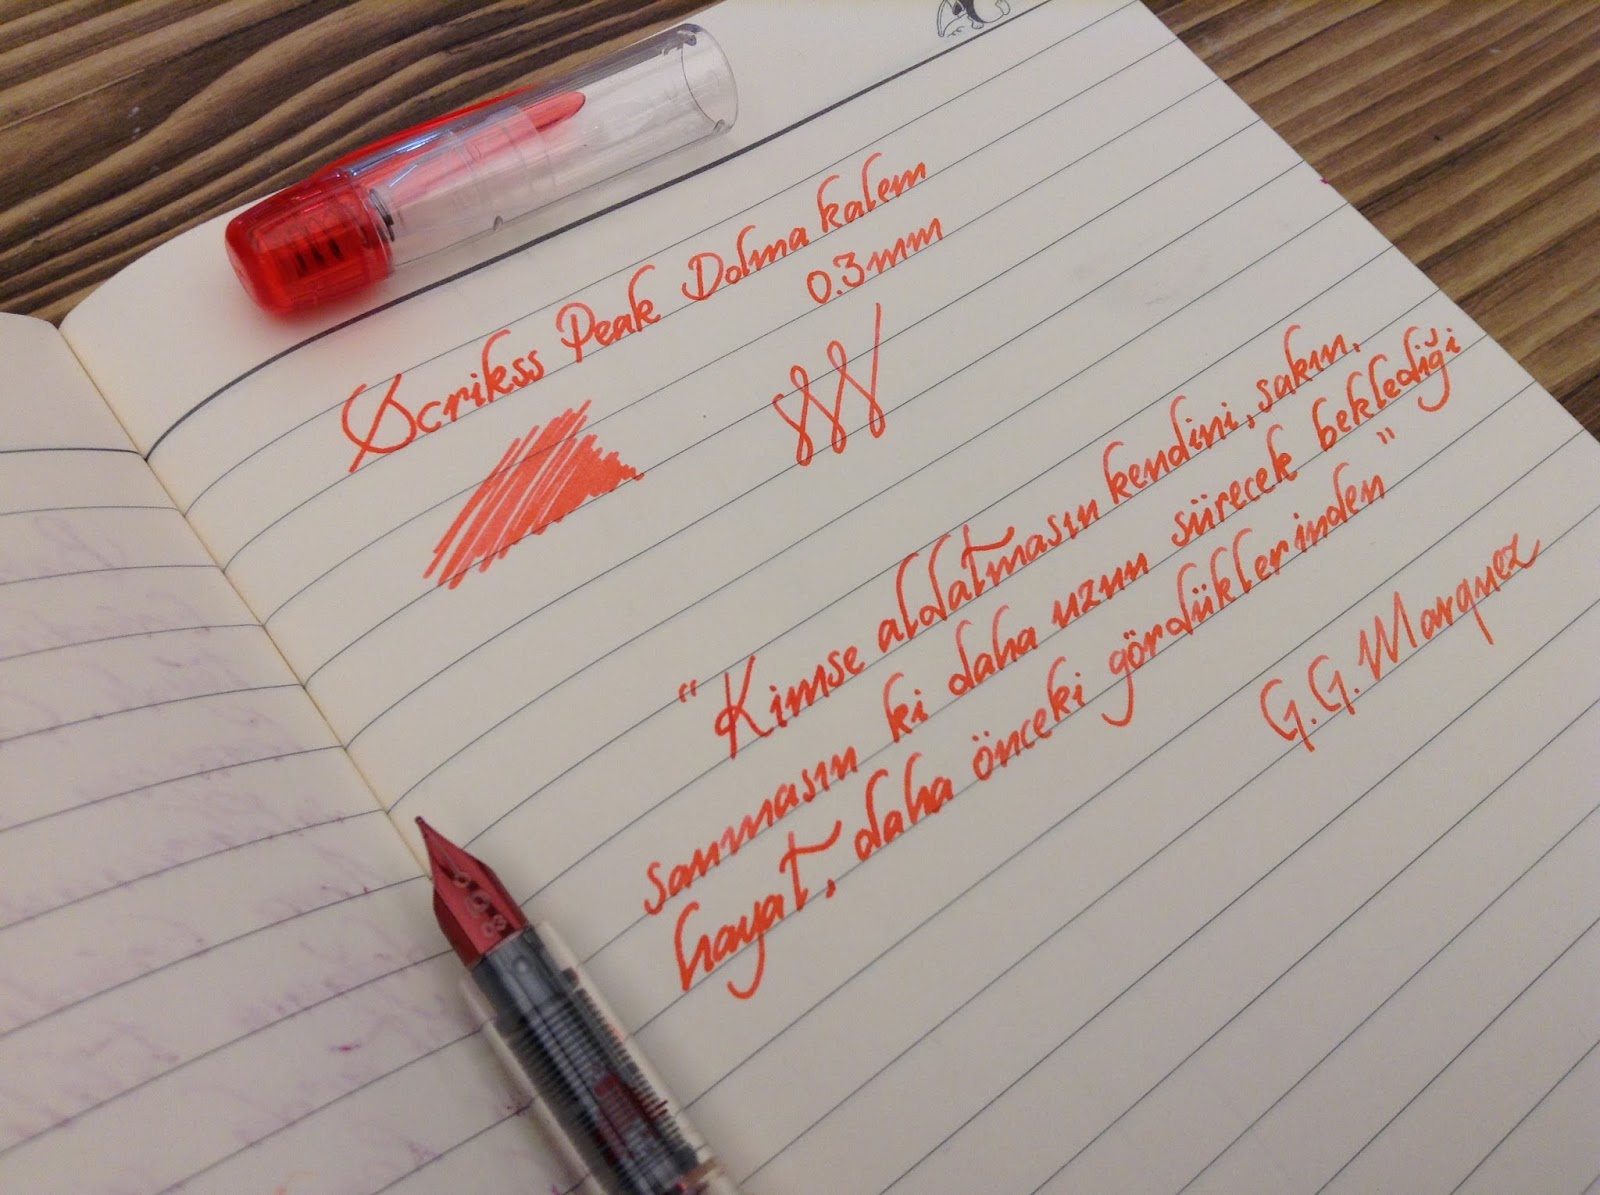 Scrikss Peak Dolma kalem
0.3 mm
"Kimse aldatmasın kendini, sakın,
sanmasın ki daha uzun sürecek beklediği
hayat, daha önceki gördüklerinden"
G.G. Marquez